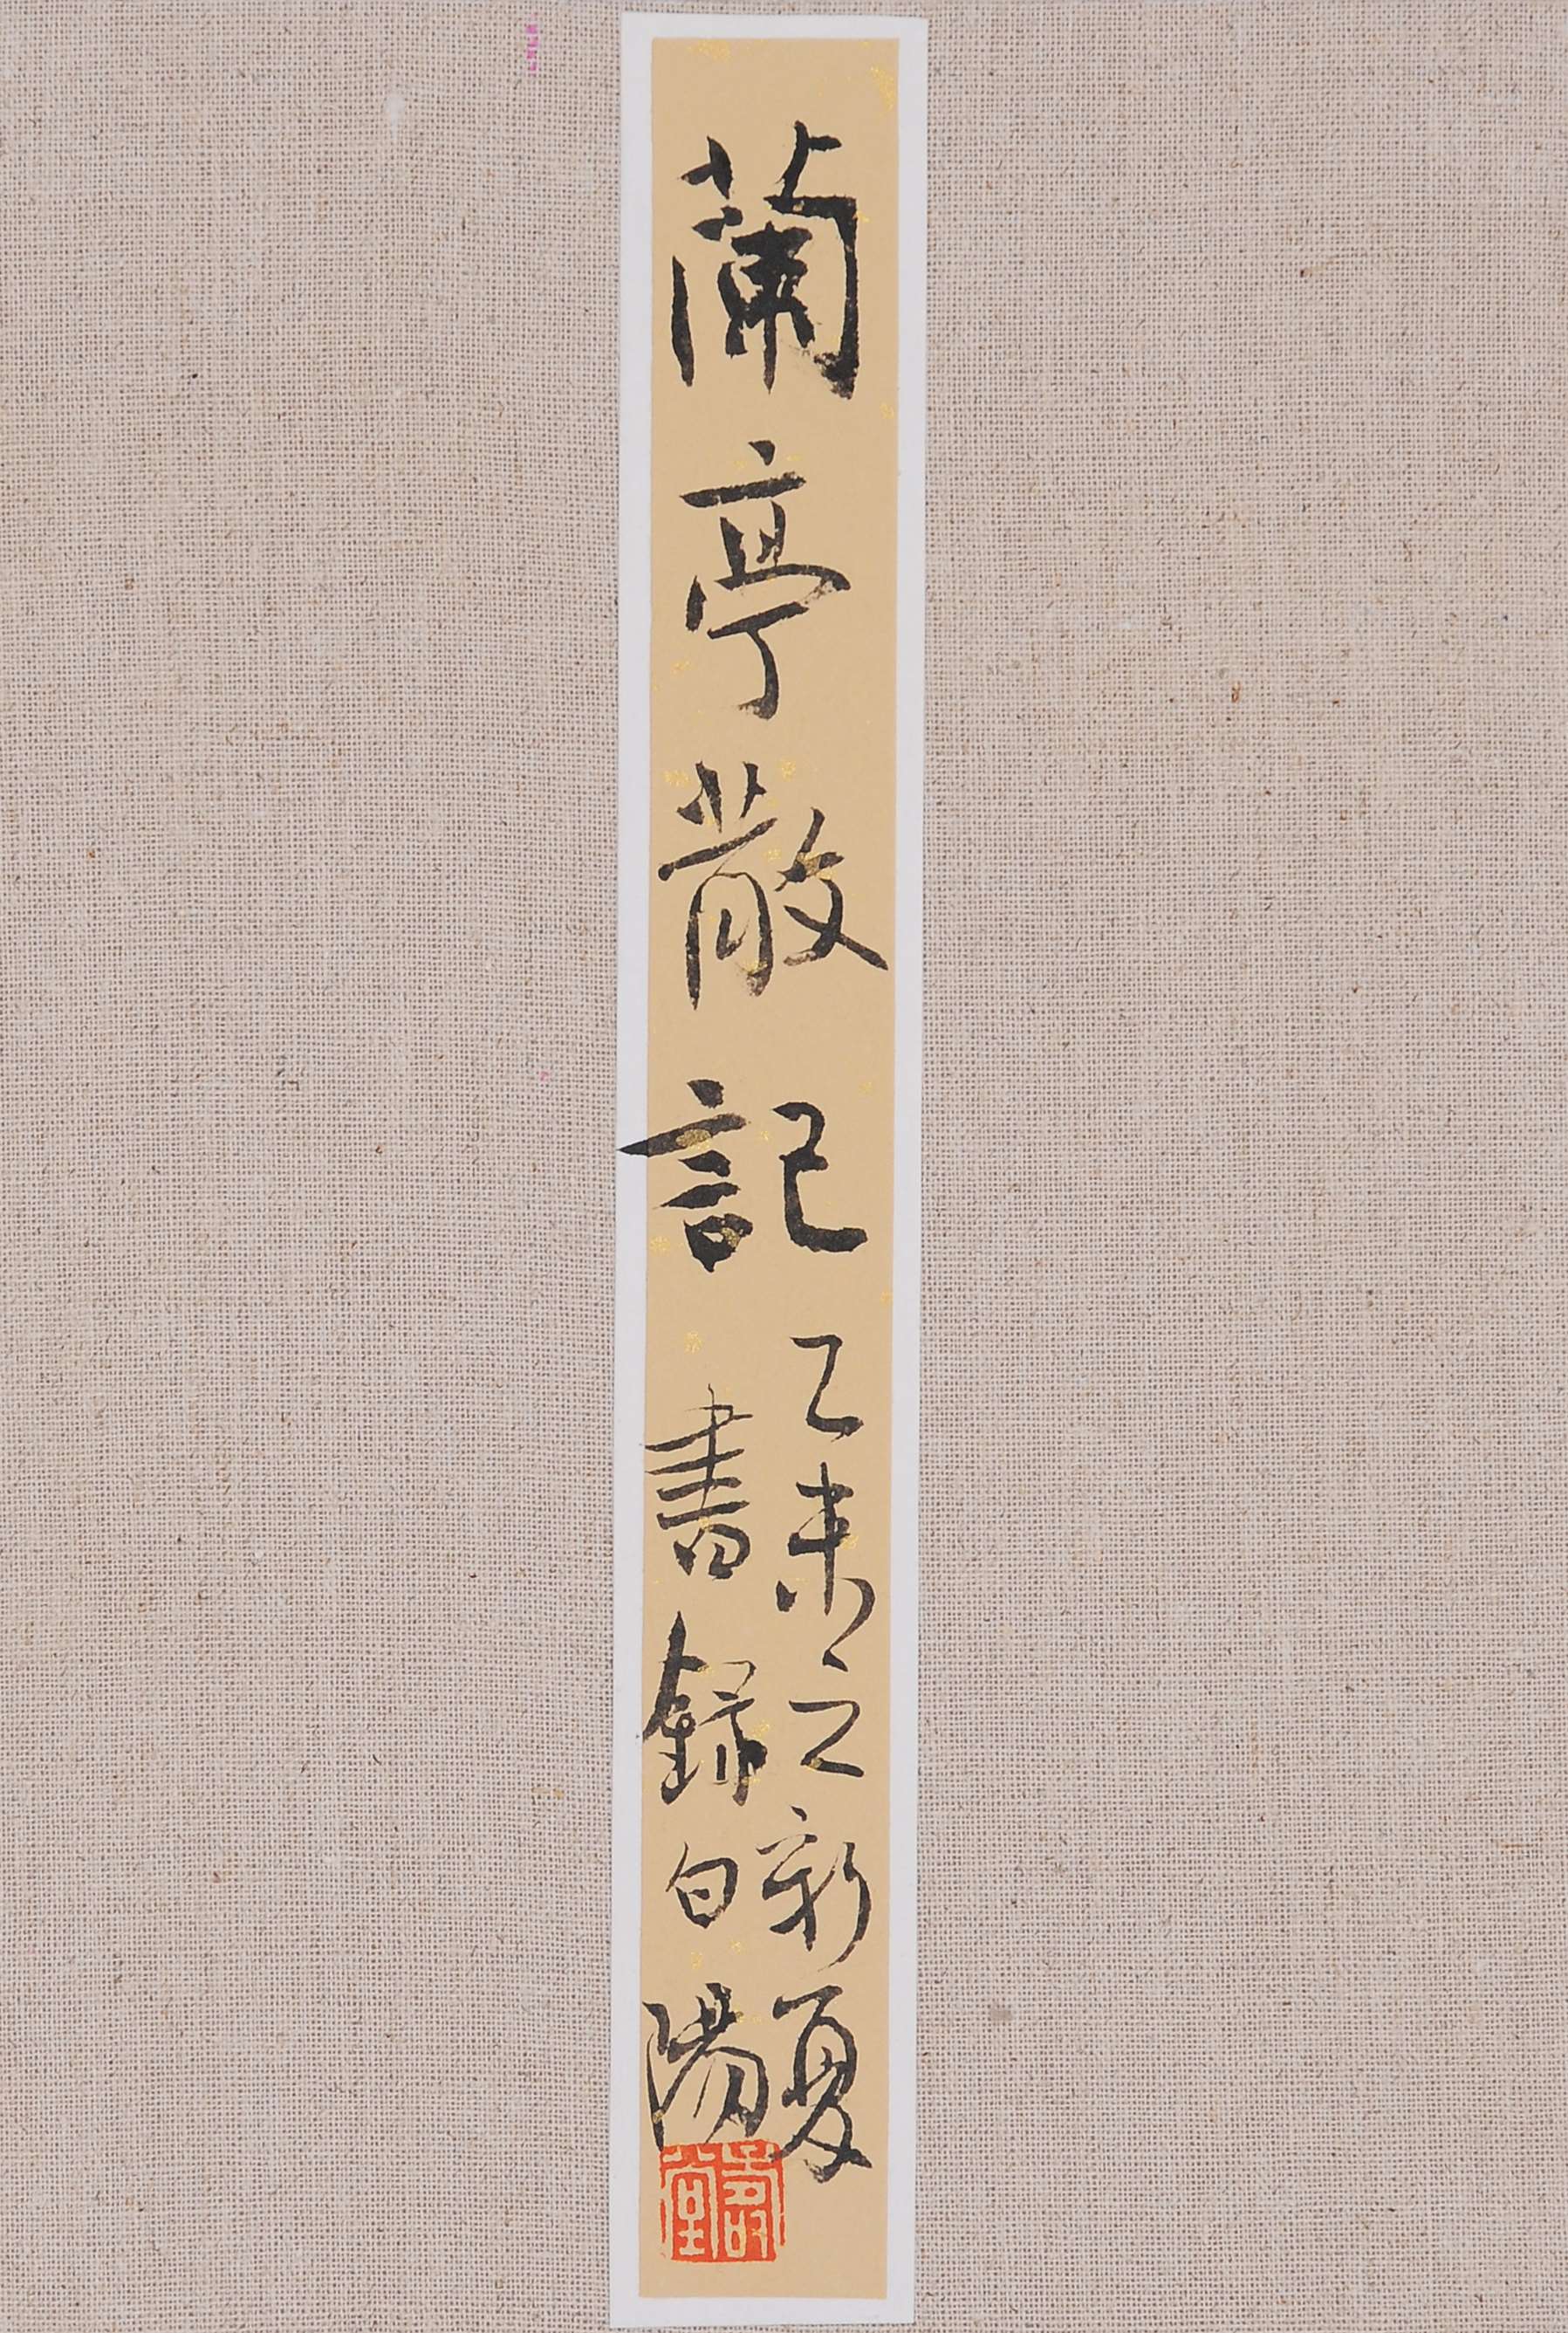 蘭亭散記
乙未之新夏
書錄白陽